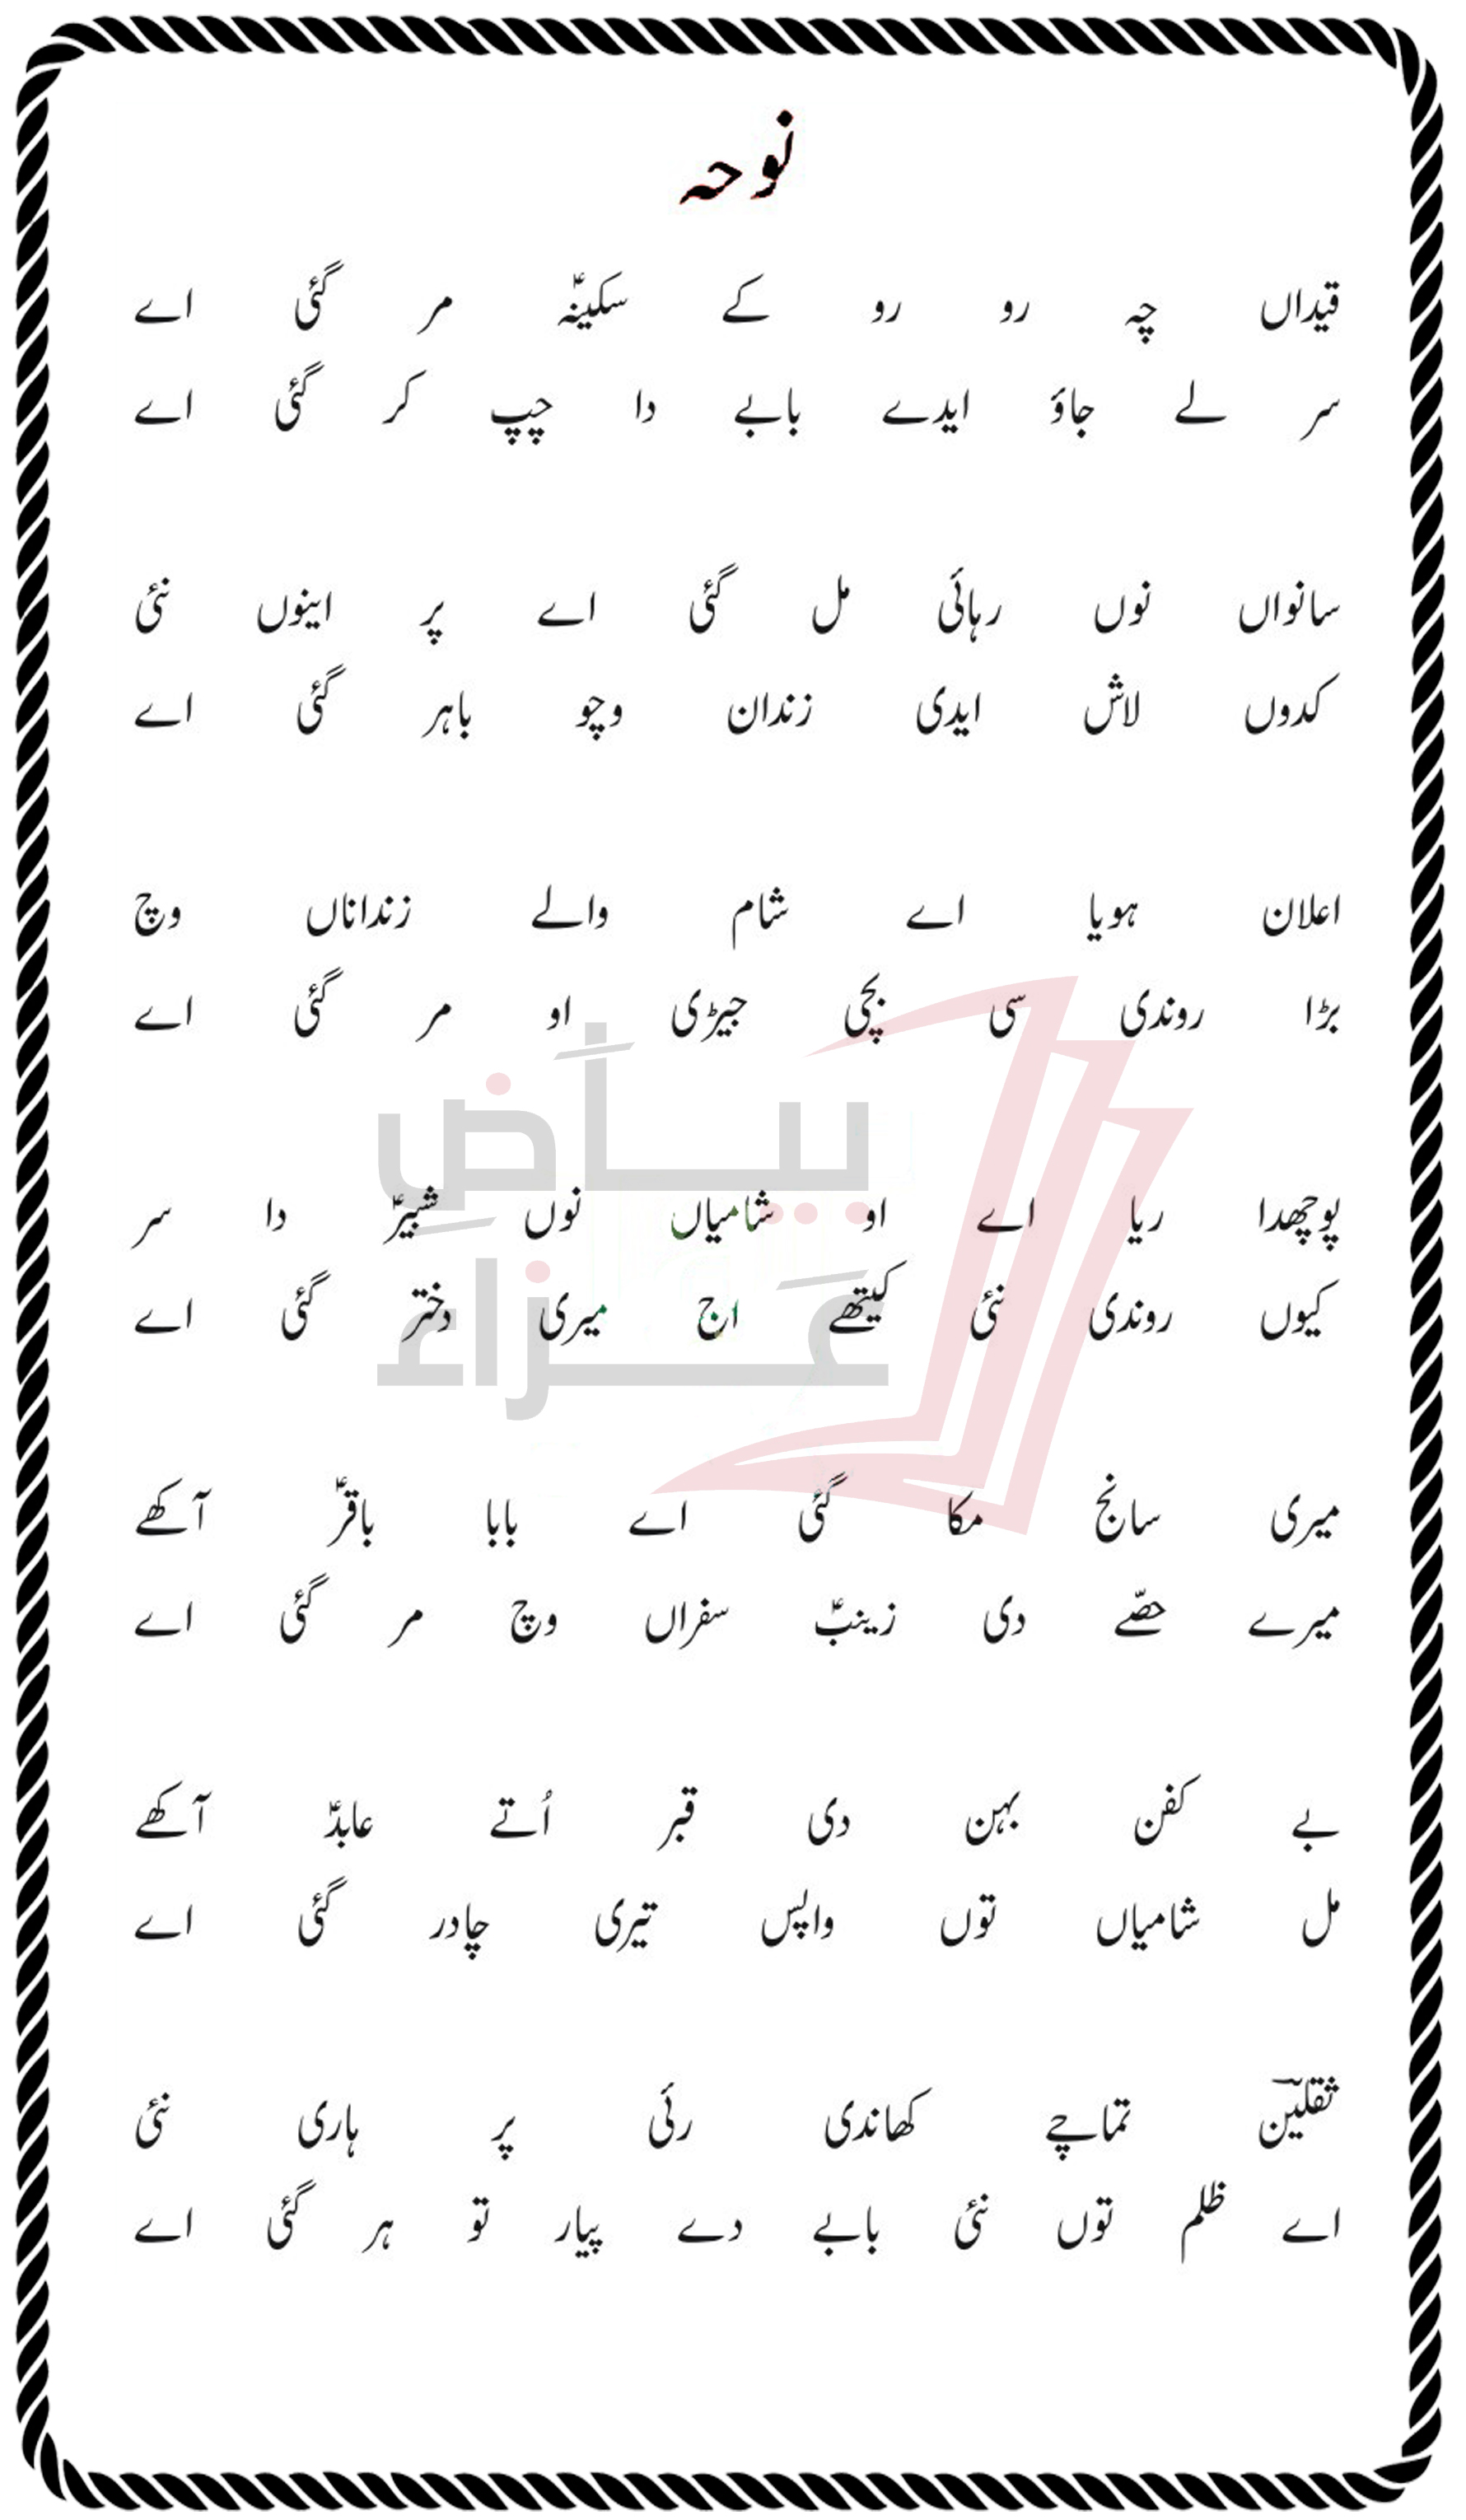 نوحہ
قیداں چہ رو رو کے سکینہؑ مر گئی اے
سر لے جاؤ ایدے بابے دا چپ کر گئی اے
سانواں نوں رہائی مل گئی اے پر اینوں نئی
کدوں لاش ایدی زندان وچو باہر گئی اے
اعلان ہویا اے شام والے زنداناں وچ
بڑا روندی سی بچی جیڑی او مر گئی اے
بیاض
پوچھدا ریا اے او شامیاں نوں شبیرؑ دا سر
کیوں روندی نئی کیتھے اج میری دختر گئی اے
عزاء
میری سانج مکا گئی اے بابا باقرؑ آکھے
میرے حصّے دی زینبؑ سفراں وچ مر گئی اے
بے کفن بہن دی قبر اُتے عابدؑ آکھے
مل شامیاں توں واپس تیری چادر گئی اے
ثقلینؔ تماچے کھاندی رئی پر ہاری نئی
اے ظلم توں نئی بابے دے پیار تو ہر گئی اے